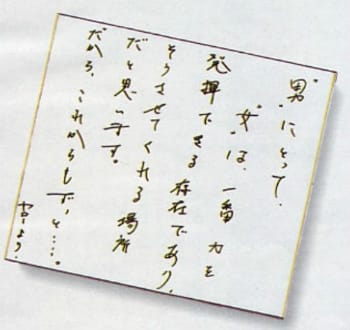 "男"にとって、
"女"は、一番 力を
発揮できる存在であり、
そうさせてくれる場所
だと思います。
だから、これからもずっと……。
より。